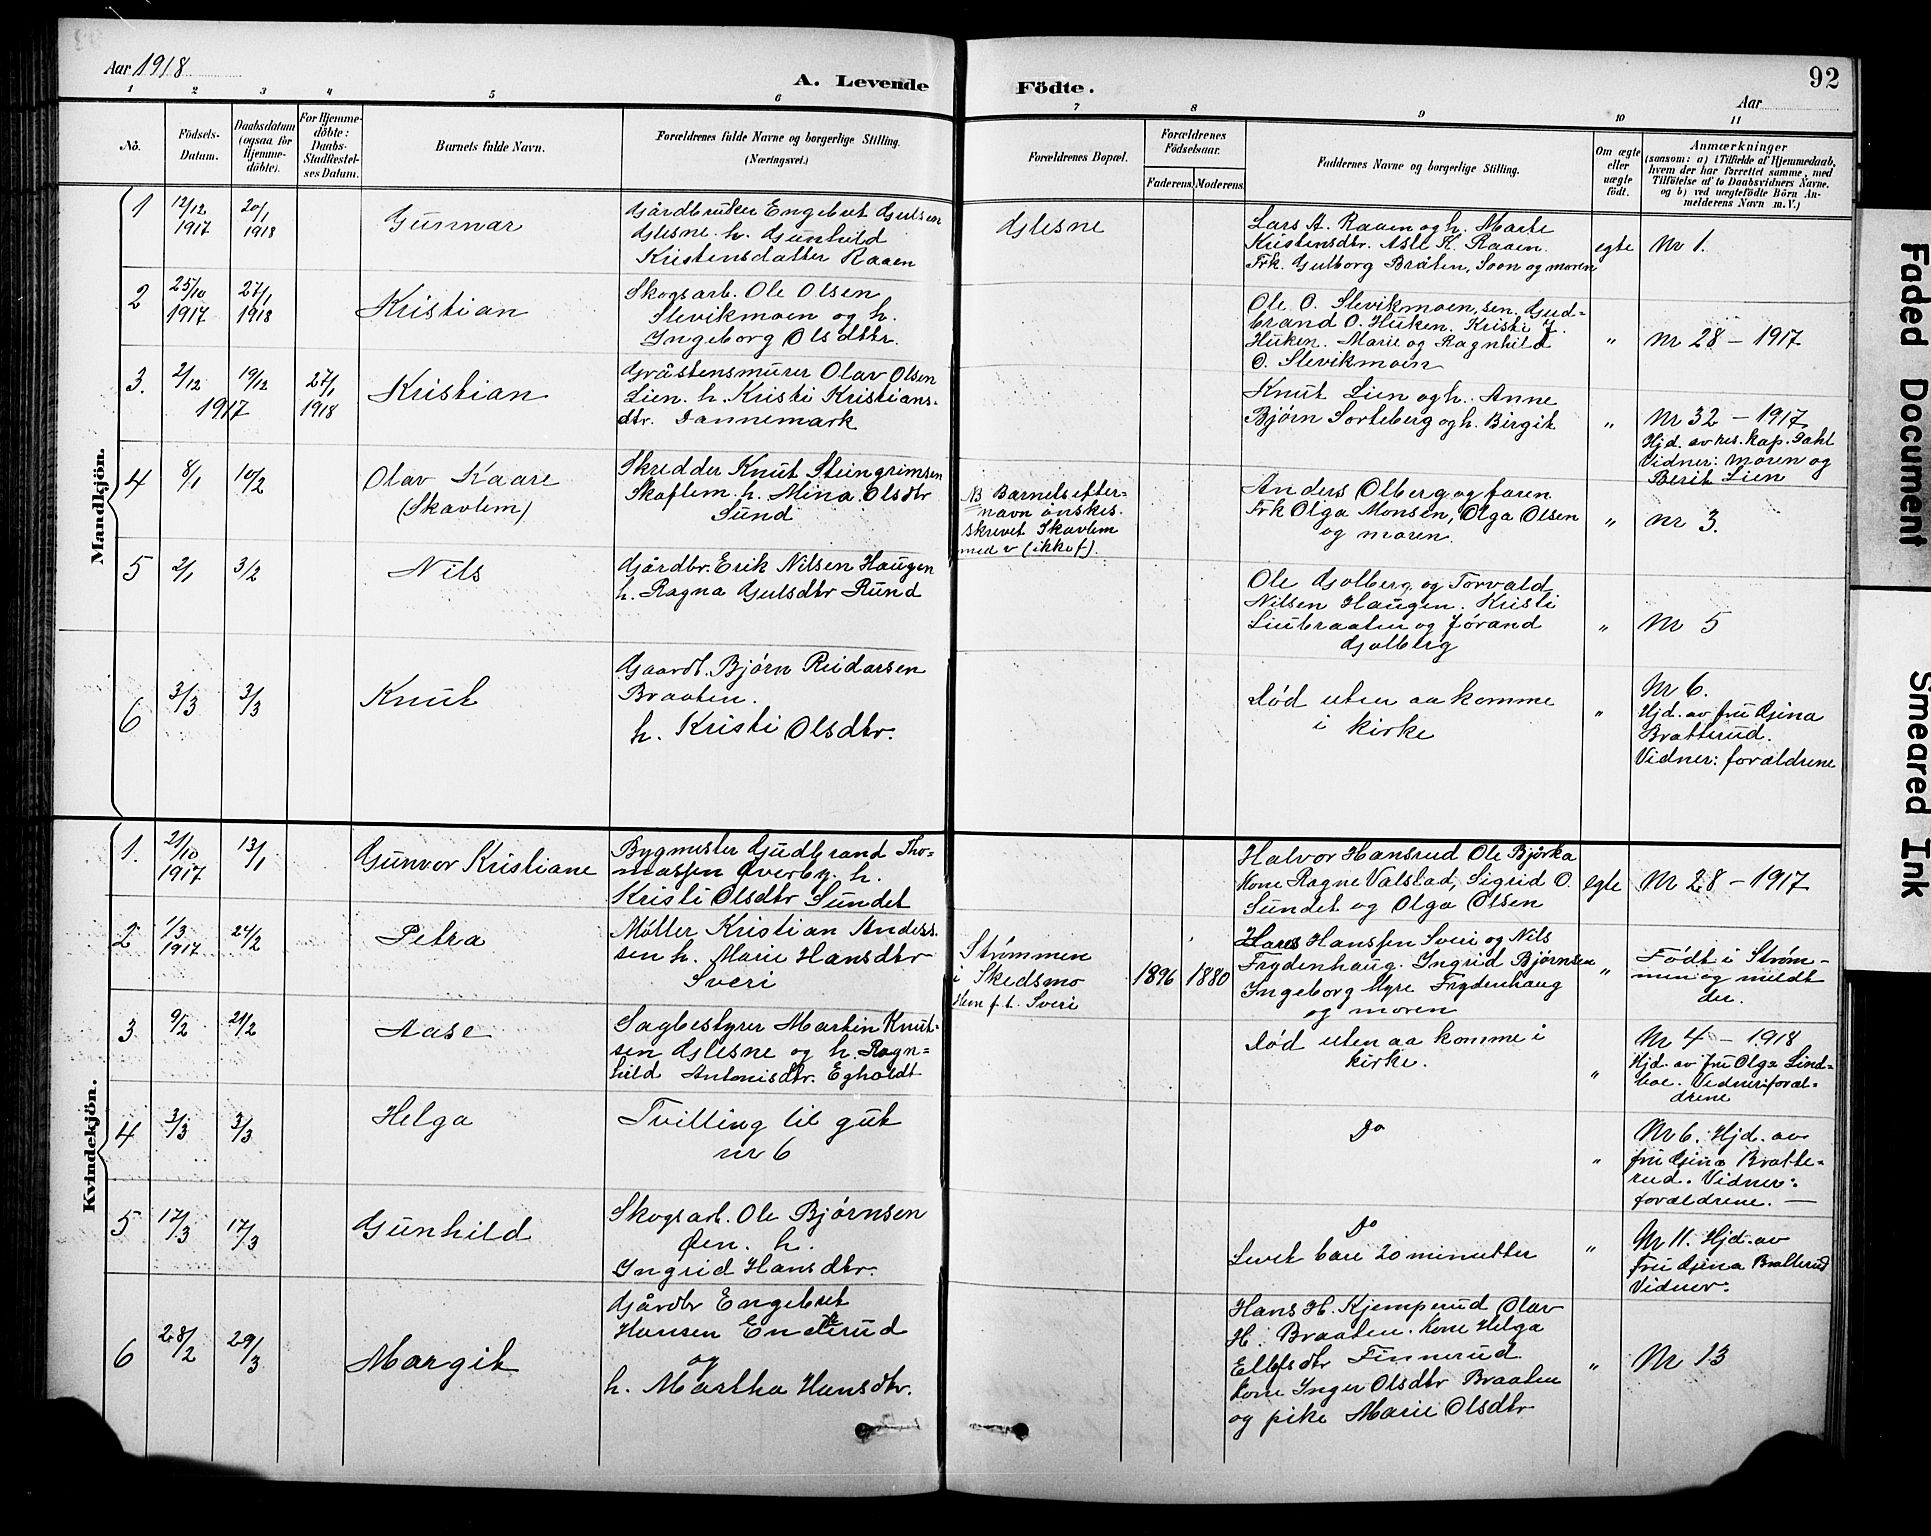 Aar 1918
A. Levende Födte.
92
Aar
1 2 3 4 5 6 7 8 9 10 11
No.
Födsels-
Datum.
Daabsdatum
(ogsaa for
Hjemme-
döbte).
For Hjemme-
döbte:
Daabs-
Stadfæstel-
ses Datum.
Barnets fulde Navn.
Forældrenes fulde Navne og borgerlige Stilling.
(Næringsvei.)
Forældrenes Bopæl.
Forældrenes
Födselsaar.
Faderens. Moderens.
Faddernes Navne og borgerlige Stilling.
Om ægte
eller
uægte
födt.
Anmærkninger
(saasom: a) i Tilfælde af Hjemmedaab,
hvem der har forrettet samme, med
Tilföielse af to Daabsvidners Navne,
og b) ved uægtefödte Börn An-
melderens Navn m. V.)
Mandkjön.
1
12/12
1917
20/1
1918
Gunnar
Gårdbruker Engebret Gulsen
Glesne. h. Gunhild
Kristensdatter Raaen
Glesne
Lars A. Raaen og h. Marte
Kristensdtr. Asle K. Raaen.
Frk. Gulborg Bråten, Soon og moren
egte
Nr 1.
2
25/10
1917
27/1
1918
Kristian
Skogsarb. Ole Olsen
Slevikmoen og h.
Ingeborg Olsdttr.
Ole O. Slevikmoen, sen. Gud-
brand O. Huken. Kristi J.
Huken. Marie og Ragnhild
O. Slevikmoen
"
Nr 28 - 1917
3.
2/12
19/12
1917
27/1
1918
Kristian
Gråstensmurer Olav Olsen
Lien. h. Kristi Kristians-
dtr. Dannemark
Knut Lien og h. Anne
Bjørn Sorteberg og h. Birgit
"
Nr 32 - 1917
Hjd. av res. kap. Dahl
Vidner: moren og
Berit Lien
4
8/1
10/2
Olav Kaare
(Skavlem)
Skredder Knut Steingrimsen
Skaflem. h. Mina Olsdtr
Sund
NB Barnets efter-
navn ønskes
skrevet Skavlem
med v (ikke f).
Anders Olberg og faren
Frk Olga Monsen, Olga Olsen
og moren.
"
nr 3.
5
2/1
3/2
Nils
Gårdbr. Erik Nilsen Haugen
h. Ragna Gulsdtr Rund
Ole Golberg og Torvald
Nilsen Haugen. Kristi
Liubraaten og Jørand
Golberg
"
Nr 5
6
3/3
3/3
Knut
Gaardb. Bjørn Reidarsen
Braaten.
h. Kristi Olsdtr.
Død uten aa komme
i kirke
"
Nr 6.
Hjd. av fru Gina
Bratterud.
Vidner: forældrene
Kvindekjön.
1.
21/10
1917
13/1
Gunvor Kristiane
Bygmester Gudbrand Tho-
massen Øverby. h.
Kristi Olsdtr Sundet
Halvor Hansrud Ole Bjørka
Kone Ragne Valstad, Sigrid O.
Sundet og Olga Olsen
egte
Nr 28 - 1917
2
1/3
1917
24/2
Petra
Møller Kristian Anders-
sen h. Marie Hansdtr
Sveri
Strømmen
i Skedsmo
Hjem f. t. Sveri
1896
1880
Hans Hanssen Sveri og Nils
Frydenhaug. Ingrid Bjørnsen
Ingeborg Myre Frydenhaug
og moren
"
Født i Strøm-
men og meldt
der.
3
9/2
21/2
Aase
Sagbestyrer Martin Knut-
sen Glesne og h. Ragn-
hild Antonisdtr. Egholdt
Død uten aa komme i
kirke.
"
Nr 4 - 1918
Hjd. av fru Olga Lind-
boe. Vidner: foræl-
drene
4
3/3
3/3
Helga
Tvilling til gut
nr 6
Do
"
Nr 6. Hjd. av
fru Gina Bratte-
rud. Vidner:
forældrene. —
5
17/3
17/3
Gunhild
Skogsarb. Ole Bjørnsen
Øen. h.
Ingrid Hansdtr.
Do
Levet bare 20 minutter
"
Nr 11. Hjd. av
Fru Gina Bratterud
Vidner:
6
28/2
29/3
Margit
Gårdbr Engebret
Hansen Enderud
og
h. Martha Hansdtr.
Hans H. Kjemperud Olav
H. Braaten. Kone Helga
Ellefsdtr Finnerud.
Kone Inger Olsdtr Braaten
og pike Marie Olsdtr
"
Nr 13
Faded Document
Smeared Ink